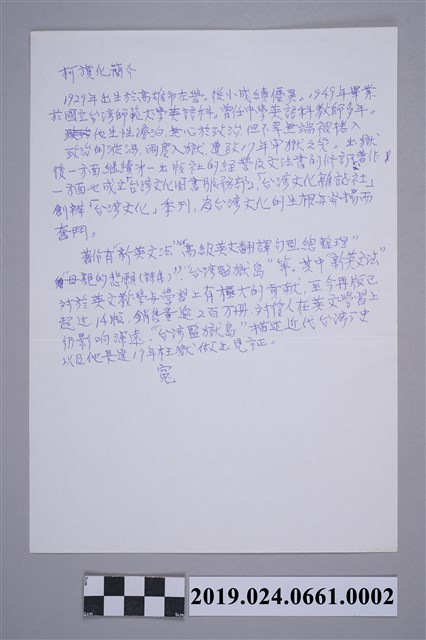 柯旗化簡介
1929年出生於高雄市左營。從小成績優異。1949年畢業
於國立台湾師範大學英語科。曾任中學英語科教師多年。
他生性淡泊，無心於政治，但不幸無端被捲入
政治的漩渦，兩度入獄，遭致17年牢獄之災。出獄
後一方面繼續第一出版社的經營及文法書的修訂著作，
一方面也成立「台湾文化図書服務部」，「台湾文化雜誌社」
創辦「台湾文化」季刊，為台湾文化的生根与發揚而
奮鬥。
著作有"新英文法""高級英文翻譯句型總整理"
"母親的悲願(詩集)""台湾監獄島"等。其中"新英文法"
对於英文教學与學習上有極大的貢献，至今再版已
超过 版，銷售量逾2百万冊，对後人在英文學習上
仍影响深遠。"台湾監獄島"描述近代台湾历史
以及他長達17年枉獄做出見証。
冤
2019.024.0661.0002